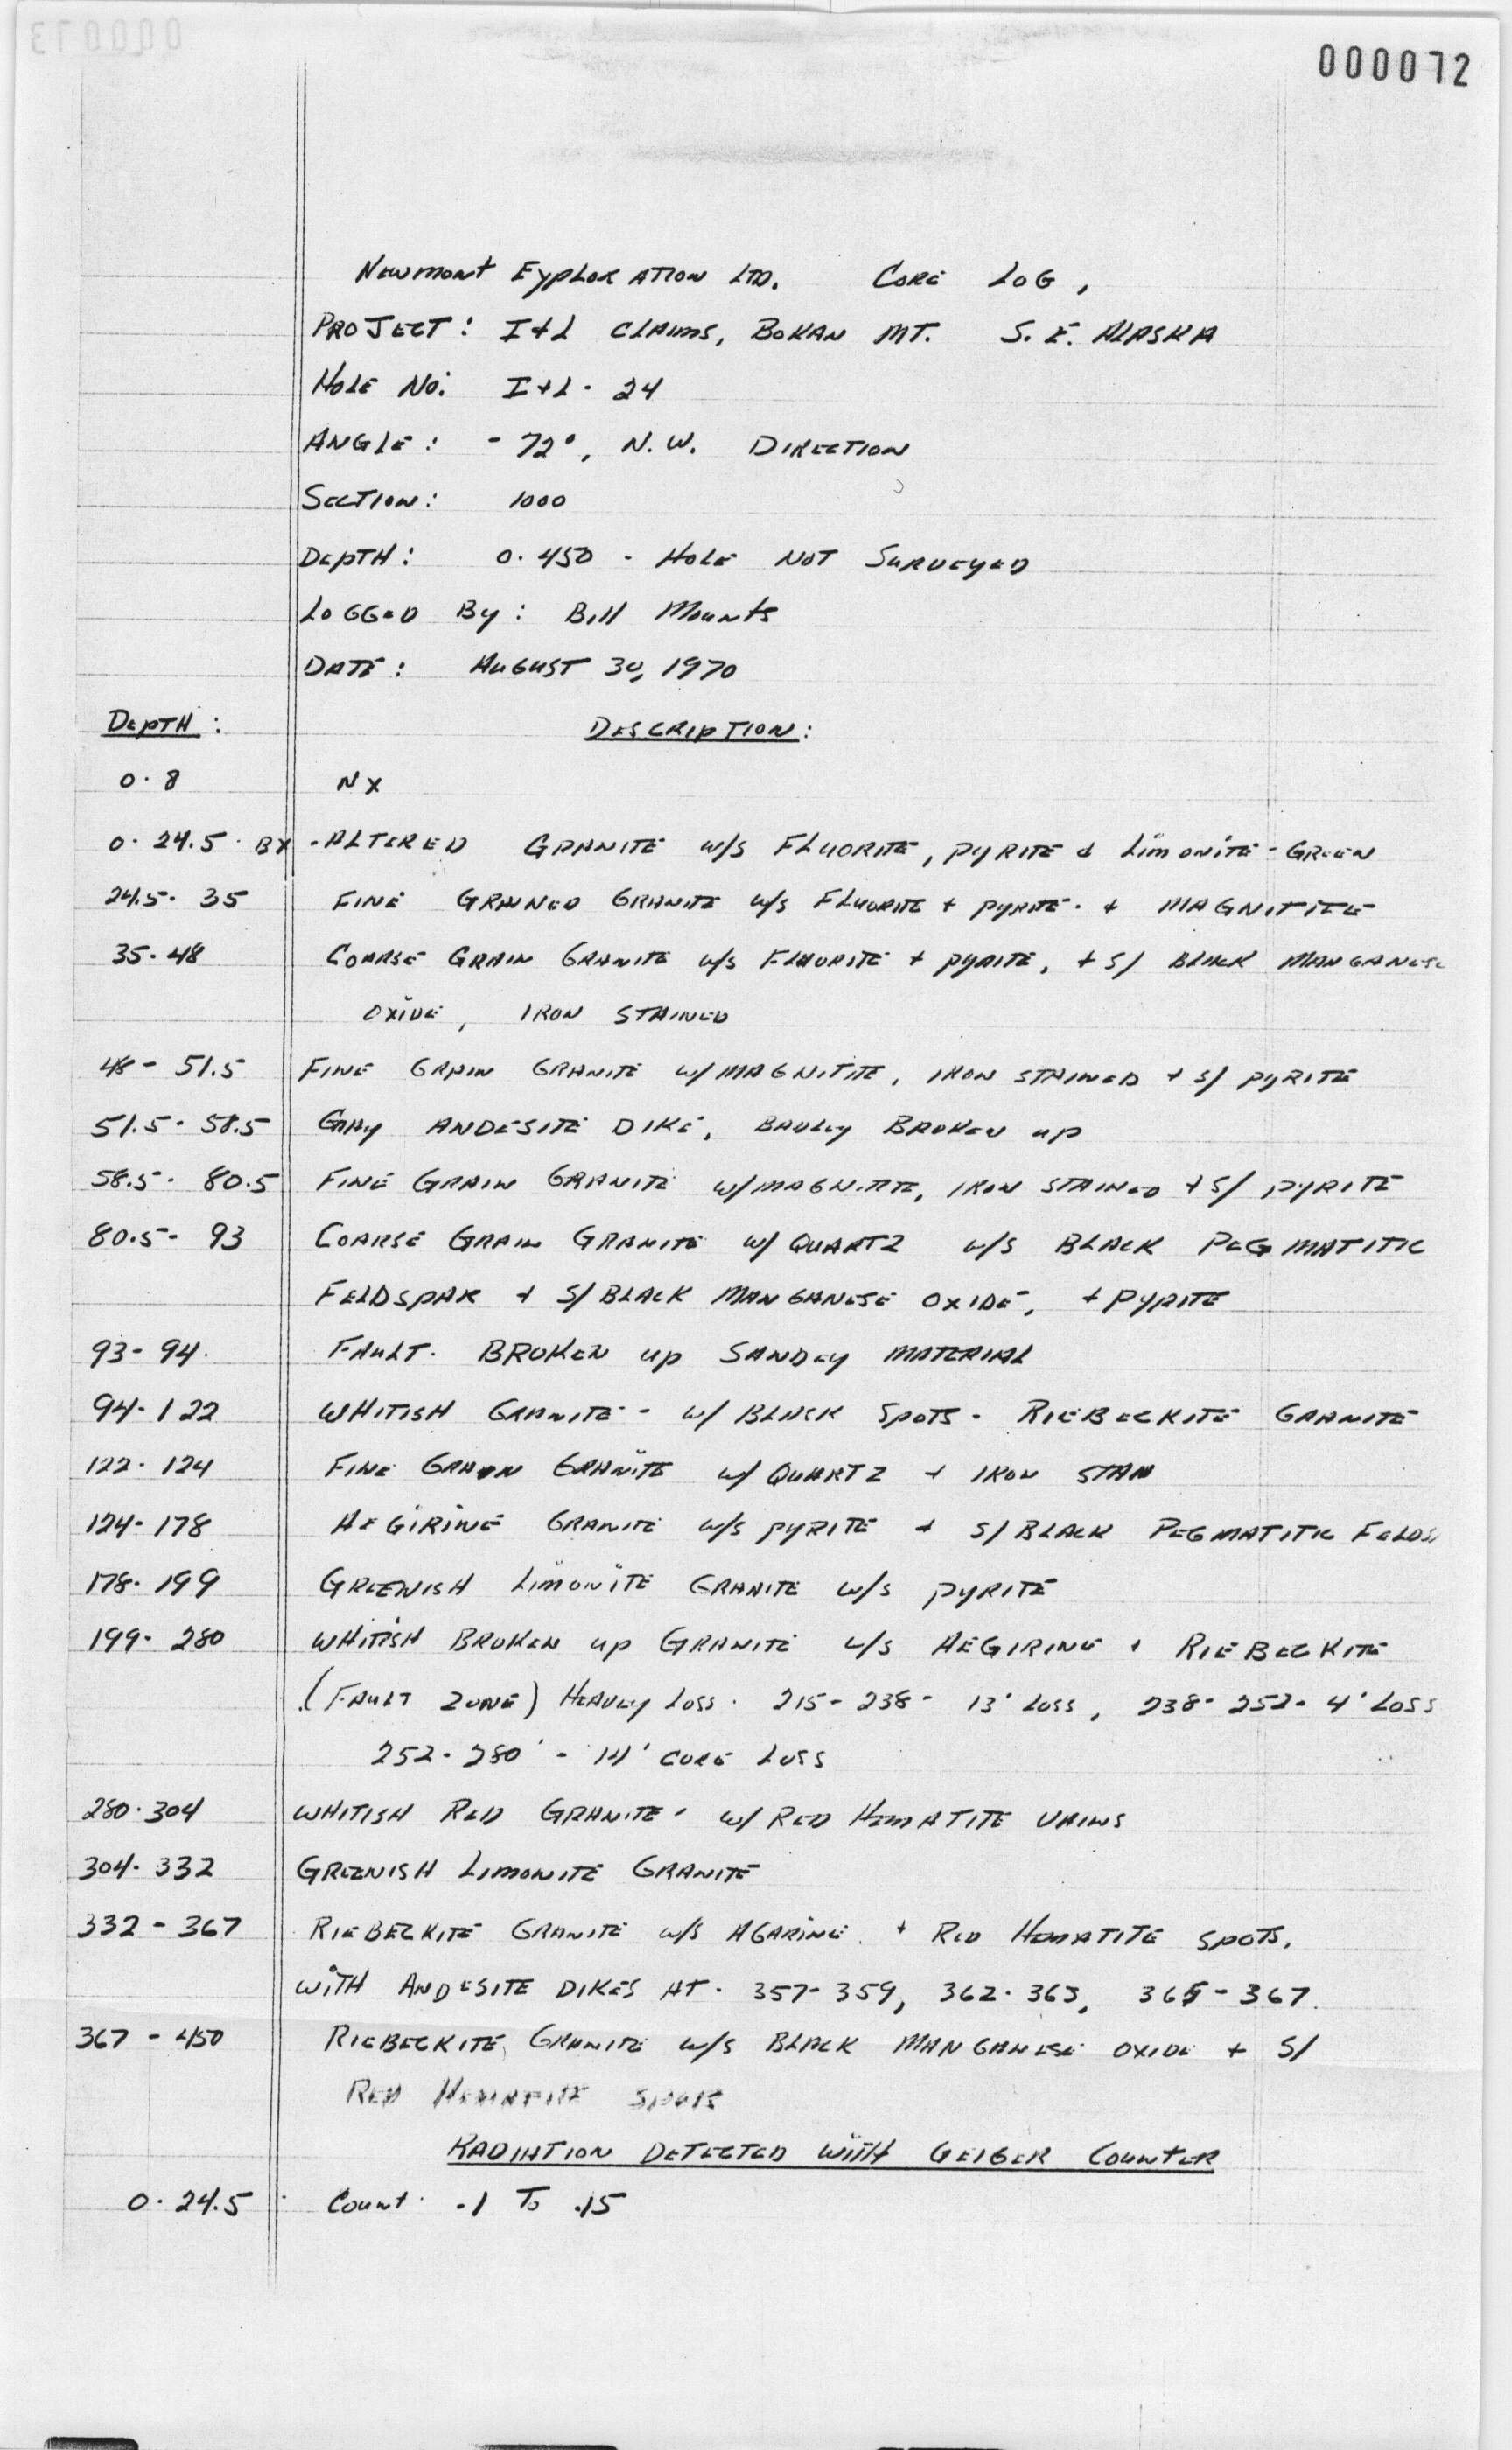 000072
NEWMONT EXPLORATION LTD. CORE LOG,
PROJECT: I+L CLAIMS, BOKAN MT. S.E. ALASKA
HOLE NO: I+L - 24
ANGLE: - 72°, N.W. DIRECTION
SECTION: 1000
DEPTH: 0-450 - HOLE NOT SURVEYED
LOGGED BY: Bill Mounts
DATE: AUGUST 30, 1970
DEPTH: DESCRIPTION:
0-8 NX
0-24.5 - BX - ALTERED GRANITE w/s FLUORITE, PYRITE & LIMONITE - GREEN
24.5-35 FINE GRAINED GRANITE w/s FLUORITE + PYRITE - + MAGNITITE
35-48 COARSE GRAIN GRANITE w/s FLUORITE + PYRITE, + S/ BLACK MANGANESE
OXIDE, IRON STAINED
48-51.5 FINE GRAIN GRANITE w/MAGNITITE, IRON STAINED + S/ PYRITE
51.5-58.5 GRAY ANDESITE DIKE, BADLEY BROKEN UP
58.5-80.5 FINE GRAIN GRANITE w/MAGNITITE, IRON STAINED + S/ PYRITE
80.5-93 COARSE GRAIN GRANITE w/ QUARTZ w/s BLACK PEGMATITIC
FELDSPAR + S/BLACK MANGANESE OXIDE, + PYRITE
93-94 FAULT - BROKEN UP SANDEY MATERIAL
94-122 WHITISH GRANITE - w/ BLACK SPOTS - RIEBECKITE GRANITE
122-124 FINE GRAIN GRANITE w/ QUARTZ + IRON STAIN
124-178 AEGIRINE GRANITE w/s PYRITE + S/BLACK PEGMATITIC FELDS
178-199 GREENISH LIMONITE GRANITE w/s PYRITE
199-280 WHITISH BROKEN UP GRANITE w/s AEGIRINE + RIEBECKITE
(FAULT ZONE) HEAVEY LOSS - 215-238 - 13' LOSS, 238-252 - 4' LOSS
252-280' - 14' CORE LOSS
280-304 WHITISH RED GRANITE - w/ RED HEMATITE VAINS
304-332 GREENISH LIMONITE GRANITE
332-367 RIEBECKITE GRANITE w/s AGARINE + RED HEMATITE SPOTS,
WITH ANDESITE DIKES AT - 357-359, 362-363, 365-367.
367-450 RIEBECKITE GRANITE w/s BLACK MANGANESE OXIDE + S/
RED HEMATITE SPOTS
RADIATION DETECTED WITH GEIGER COUNTER
0-24.5 COUNT - .1 TO .15